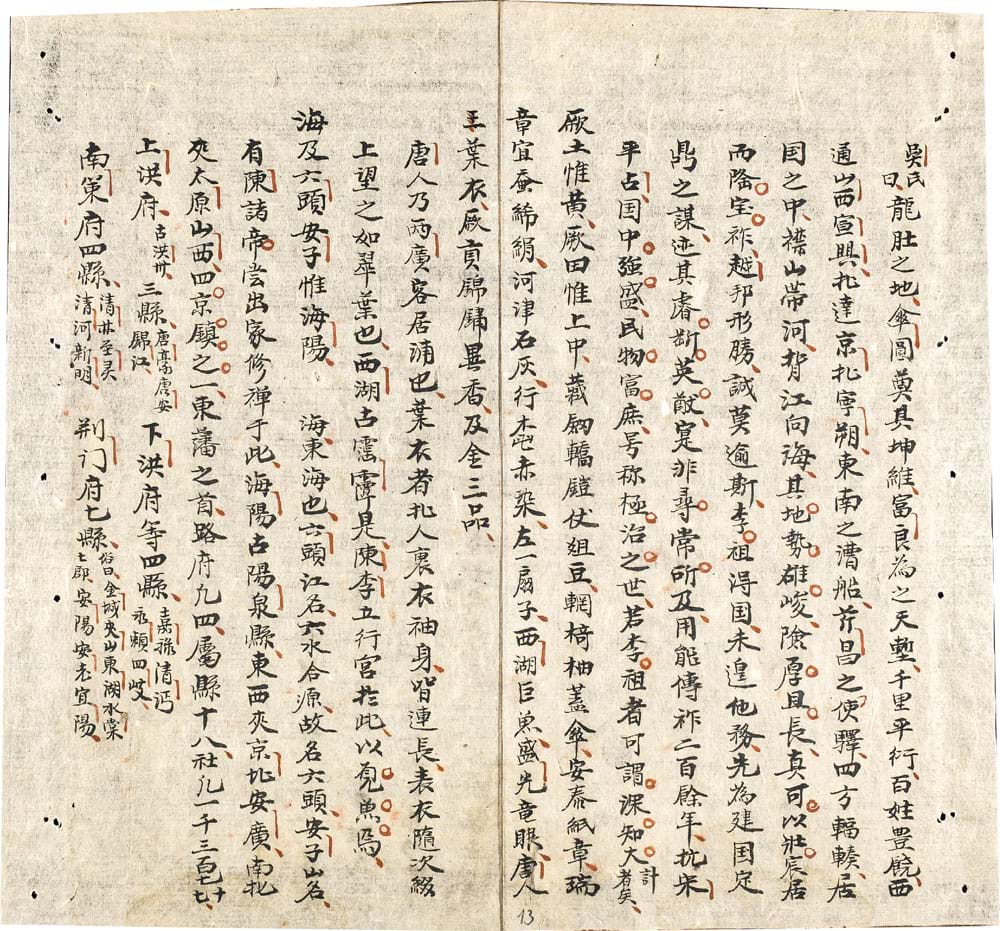 吳氏曰龍肚之地傘圓奠其坤維富良為之天塹千里平衍百姓豊饒西
通山西宣興北達京北寧朔東南之漕船芹昌之使驛四方輻輳居
国之中襟山帶河背江向海其地勢雄峻險厚且長真可以壯宸居
而隆宝祚越邦形勝誠莫逾斯李祖得国未遑他務先為建国定
鼎之謀迹其睿斷英猷寔非尋常所及用能傳祚二百餘年抗宋
平占国中強盛民物富庶号称極治之世若李祖者可謂深知大計者矣
厥土惟黄厥田惟上中藏劔轎鎧仗組豆輞椅柚蓋傘安泰紙章瑞
章宜蚕絺絹河津石灰行赤染左一扇子西湖巨魚盛光竜眼唐人
三葉衣厥貢錦異香及金三品
唐人乃两廣客居浦也葉衣者北人裏衣袖身皆連長表衣隨次綴
上望之如翠葉也西湖古是陳李立行宮於此以覌魚焉
海及六頭安子惟海陽 海東海也六頭江名六水合源故名六頭安子山名
有陳諸帝嘗出家修禪于此海陽古陽泉縣東西夾京北安廣南北
夾太原山西四京鎮之一東藩之首路府凡四屬縣十八社凡一千三百七十七
上洪府古洪州三縣唐豪唐安錦江 下洪府等四縣嘉祿清沔永賴四岐
南策府四縣清林至灵清河新明 荆门府七縣俗曰金城夾山東湖水棠七即安陽安老宜陽
13